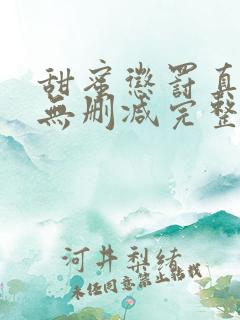 甜蜜懲罰真
無刪减完整
河井梨緒
未经同意禁止转载